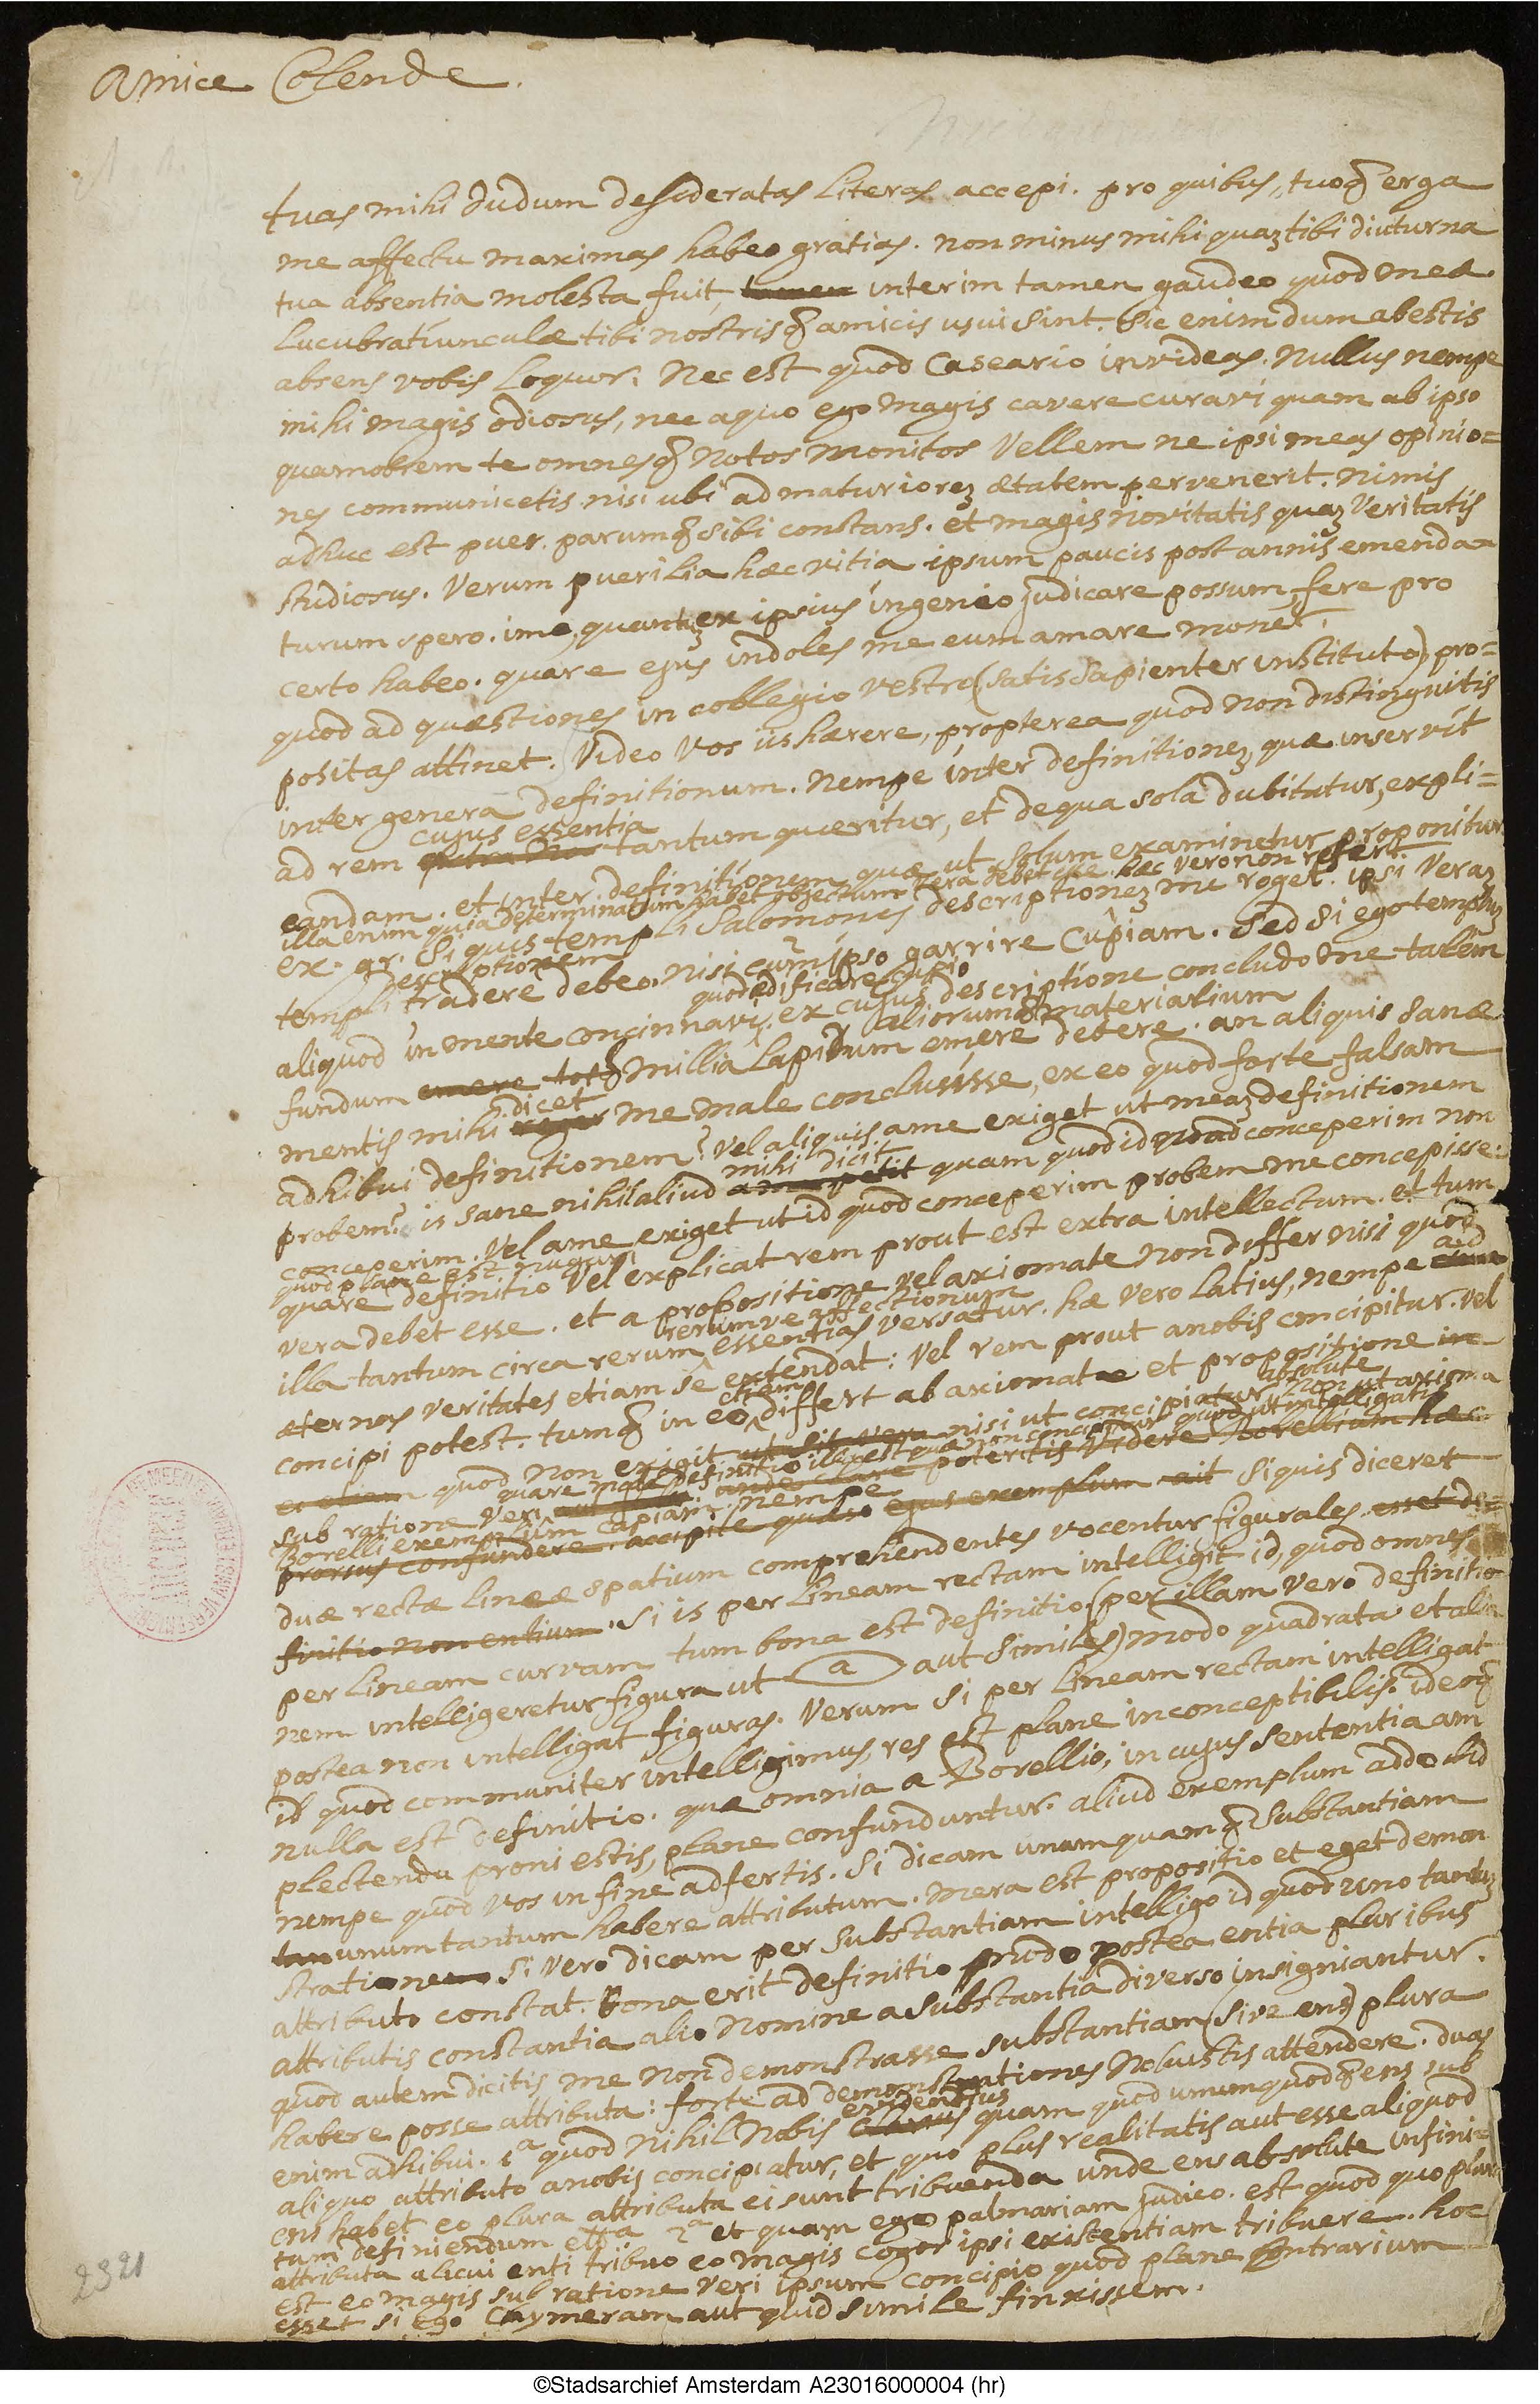 Amice Colende.
tuas mihi dudum desideratas literas accepi. pro quibus, tuoq; erga
me affectu maximas habeo gratias. non minus mihi quaz tibi diuturna
tua absentia molesta fuit, tamen interim tamen gaudeo quod meæ
lucubratiunculæ tibi nostrisq; amicis usui sint. Sic enim dum abestis
absens vobis loquor. Nec est quod Caseario invideas. Nullus nempe
mihi magis odiosus, nec a quo ego magis cavere curavi quam ab ipso
quamobrem te omnesq; notos monitos vellem ne ipsi meas opinio=
nes communicetis nisi ubi ad maturiorez ætatem pervenerit. nimis
adhuc est puer. parumq; sibi constans. et magis novitatis quaz veritatis
studiosus. Verum puerilia hæc vitia ipsum paucis post annis emenda=
turum spero. imo, quantuz ex ipsius ingenio judicare possum, fere pro
certo habeo. quare ejus indoles me eum amare monet.
quod ad quæstiones in collegio vestro (satis sapienter instituto) pro=
positas attinet. Video vos iis hærere, propterea quod non distinguitis
inter genera definitionum. Nempe inter definitionez, quæ inservit
cujus essentia
ad rem tantum quæritur, et de qua sola dubitatur, expli=
candam. et inter definitionem quæ ut solum examinetur proponitur
illa enim quia determinatum habet objectum vera debet esse. hæc vero non refert
ex. gr. Si quis templi Salomones descriptionez me roget. ipsi veraz
descriptionem
templi tradere debeo. nisi cum ipso garrire cupiam. sed si ego templuz
quod ædificare cupio
aliquod in mente concinnavi. ex cujus descriptione concludo me talem
aliorumq; materialium
fundum emere totq; millia lapidum emere debere. an aliquis sanæ
dicet
mentis mihi me male conclusisse, ex eo quod forte falsam
adhibui definitionem? vel aliquis a me exiget ut meaz definitionem
mihi dicit
probem? is sane nihil aliud a me petit quam quod id quod conceperim non
conceperim. Vel a me exiget ut id quod conceperim probem me concepisse.
quod plane est nugari
quare definitio vel explicat rem prout est extra intellectum. et tum
vera debet esse. et a propositione vel axiomate non differ nisi quod
rerumve affectionum
illa tantum circa rerum essentias versatur. hæ vero latius, nempe ad
æternas veritates etiam se extendat: Vel rem prout a nobis concipitur. vel
etiam
concipi potest. tumq; in eo differt ab axiomate et propositione in
absolute
eo etiam quod non exigit ut sit vera nisi ut concipiatur non ut axioma
quare mala definitio illa est quæ non concipitur quod ut intelligatis
sub ratione veri. unde clare poteritis videre Borellium hæc
Borelli exemplum capiam. nempe
prorsus confundere. accipite quæso ejus exemplum sit si quis diceret
duæ rectæ lineæ spatium comprehendentes vocentur figurales. esset de=
finitio non entium. Si is per lineam rectam intelligit id, quod omnes
per lineam curvam tum bona est definitio (per illam vero definitio
nem intelligeretur figura ut a aut similes) modo quadrata et alia
postea non intelligat figuras. Verum si per lineam rectam intelligat
id quod communiter intelligimus, res est plane inconceptibilis. ideoq;
nulla est definitio. quæ omnia a Borellio, in cujus sententia am
plectendu proni estis, plane confunduntur. aliud exemplum addo id
nempe quod vos in fine adfertis. Si dicam unamquamq; substantiam
tan unum tantum habere attributum. mera est propositio et eget demon
stratione. Si vero dicam per substantiam intelligo id quod uno tantuz
attributo constat. Bona erit definitio modo postea entia pluribus
attributis constantia alio nomine a substantia diverso insigniantur.
quod autem dicitis me non demonstrasse substantiam (sive ens) plura
habere posse attributa: forte ad demonstrationes noluistis attendere. duas
evidentius
enim adhibui. 1a quod nihil nobis clarius quam quod unumquodq; ens sub
aliquo attributo a nobis concipiatur, et quo plus realitatis aut esse aliquod
ens habet eo plura attributa ei sunt tribuenda unde ens absolute infini=
tum definiendum etta 2a et quam ego palmariam judico. est quod quo plura
attributa alicui enti tribuo eo magis cogor ipsi existentiam tribuere. hoc
est eo magis sub ratione veri ipsum concipio quod plane contrarium
esset si ego Chymeram aut quid simile finxissem.
2321
©Stadsarchief Amsterdam A23016000004 (hr)